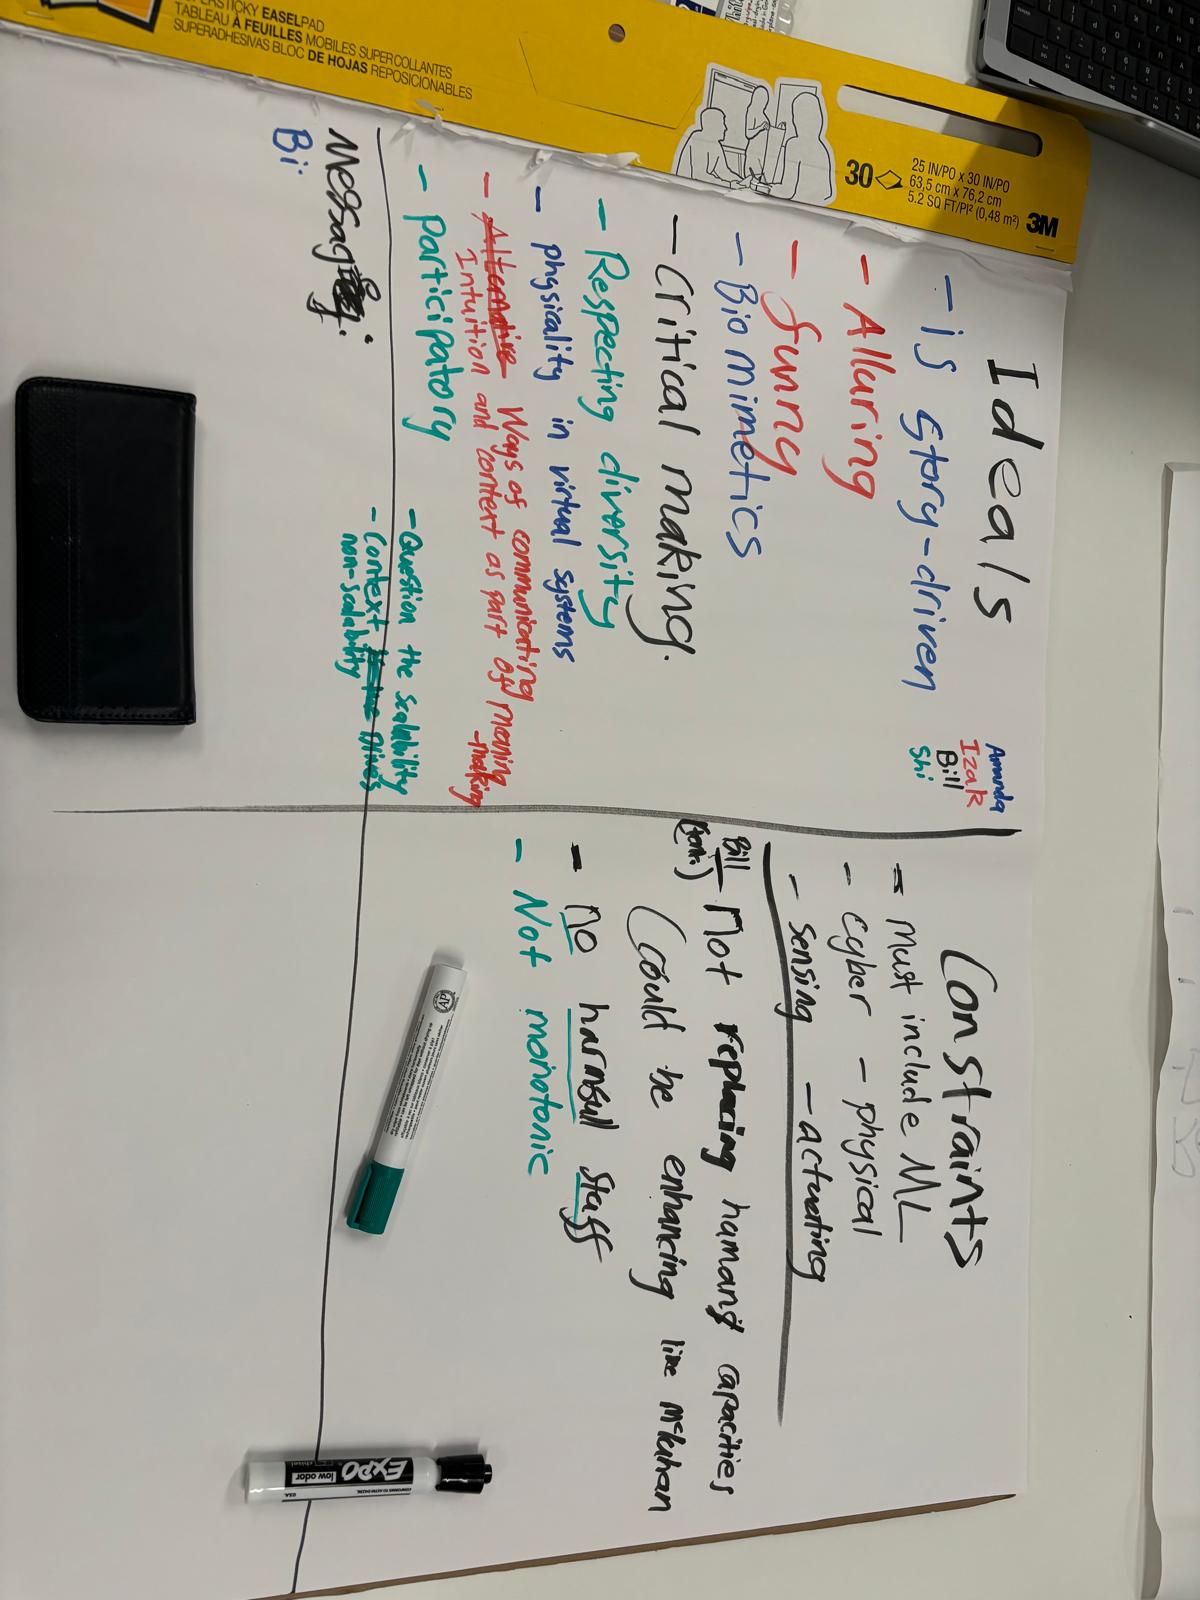 SUPERSTICKY EASELPAD
TABLEAU À FEUILLES MOBILES SUPERCOLLANTES
SUPERADHESIVAS BLOC DE HOJAS REPOSICIONABLES
30
25 IN/PO x 30 IN/PO
63,5 cm x 76,2 cm
5.2 SQ FT/PI² (0,48 m²)
3M
Ideals
Amanda
Izak
Bill
Shi
- is story-driven
- Alluring
- funny
- Biomimetics
- Critical making.
- Respecting diversity
- physicality in virtual systems
- Alternative Ways of communicating
Intuition and context as part of meaning
-making
- participatory
- Question the scalability
- Context
non-scalability
Messag
Bi:
Constraints
- Must include ML
- cyber - physical
- sensing - actuating
Bill
- Not replacing humans capacities
(Could be enhancing like
- no harmful stuff
- Not monotonic
AP
EXPO
low odor